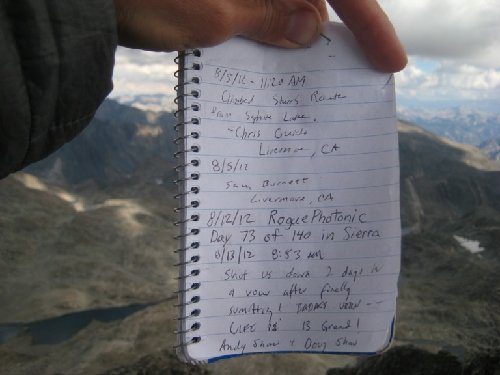 8/5/12 - 11:20 AM
Climbed Starrs Route
from Sapphire Lake.
- Chris
Livermore, CA
8/5/12
Sam Burnett
Livermore, CA
8/12/12 RoguePhotonic
Day 73 of 140 in Sierra
8/13/12 8:53 AM
Shut us down 2 days in
a row after finally
summiting! TODAYS VIEW --
LIFE IS Grand!
Andy Shaw & Doug Shaw